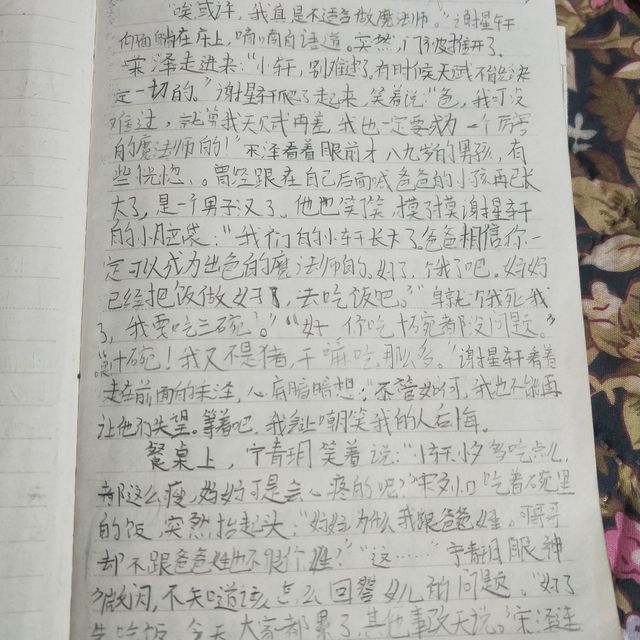 "唉或许，我真是不适合做魔法师。"谢星轩
仰面躺在床上，喃喃自语道。突然，门被推开了，
宋泽走进来："小轩，别难过了，有时候天赋不能决
定一切的。"谢星轩爬了起来，笑着说："爸，我可没
难过，就算我天赋再差，我也一定要成为一个厉害
的魔法师的！"宋泽看着眼前才八九岁的男孩，有
些恍惚、。曾经跟在自己后面喊爸爸的小孩再已长
大了，是一个男子汉了。他也笑笑，摸了摸谢星轩
的小脑袋："我们的小轩长大了，爸爸相信你一
定可以成为出色的魔法师的。好了，饿了吧。妈妈
已经把饭做好了，去吃饭吧。""早就饿死我
了，我要吃三碗。""好，你吃十碗都没问题。"
"十碗！我又不是猪，干嘛吃那么多。"谢星轩看着
走在前面的宋泽，心有暗暗想："不管如何，我也不能再
让他们失望。等着吧，我会让嘲笑我的人后悔。
餐桌上，宁青玥笑着说："小轩，多吃点儿，
都这么瘦，妈妈可是会心疼的呢。"宋 吃着碗里
的饭，突然抬起头："妈妈为什么我跟爸爸姓。哥哥
却不跟爸爸姓也不跟你姓？""这……"宁静月眼神
微闪，不知道该怎么回答女儿的问题。"好了
先吃饭，今天大家都累了，其他事改天说。"宋泽连